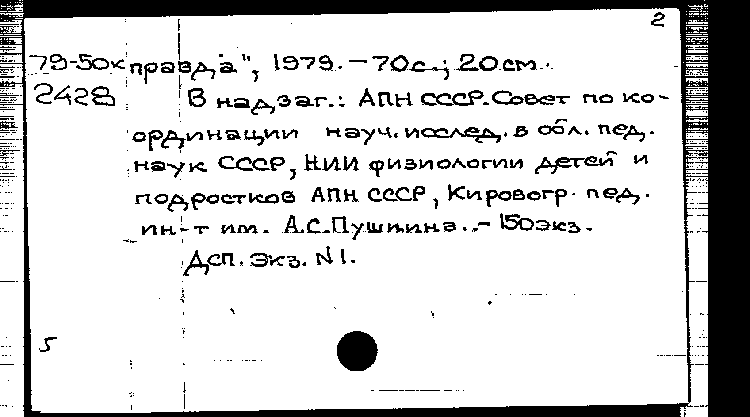 2
79-50к правда", 1979. – 70с.; 20см.
2428 В надзаг.: АПН СССР. Совет по ко-
ординации науч. исслед. в обл. пед.
наук СССР, НИИ физиологии детей и
подростков АПН СССР, Кировогр. пед.
ин-т им. А.С.Пушкина. – 150экз.
Дсп. Экз. N1.
5